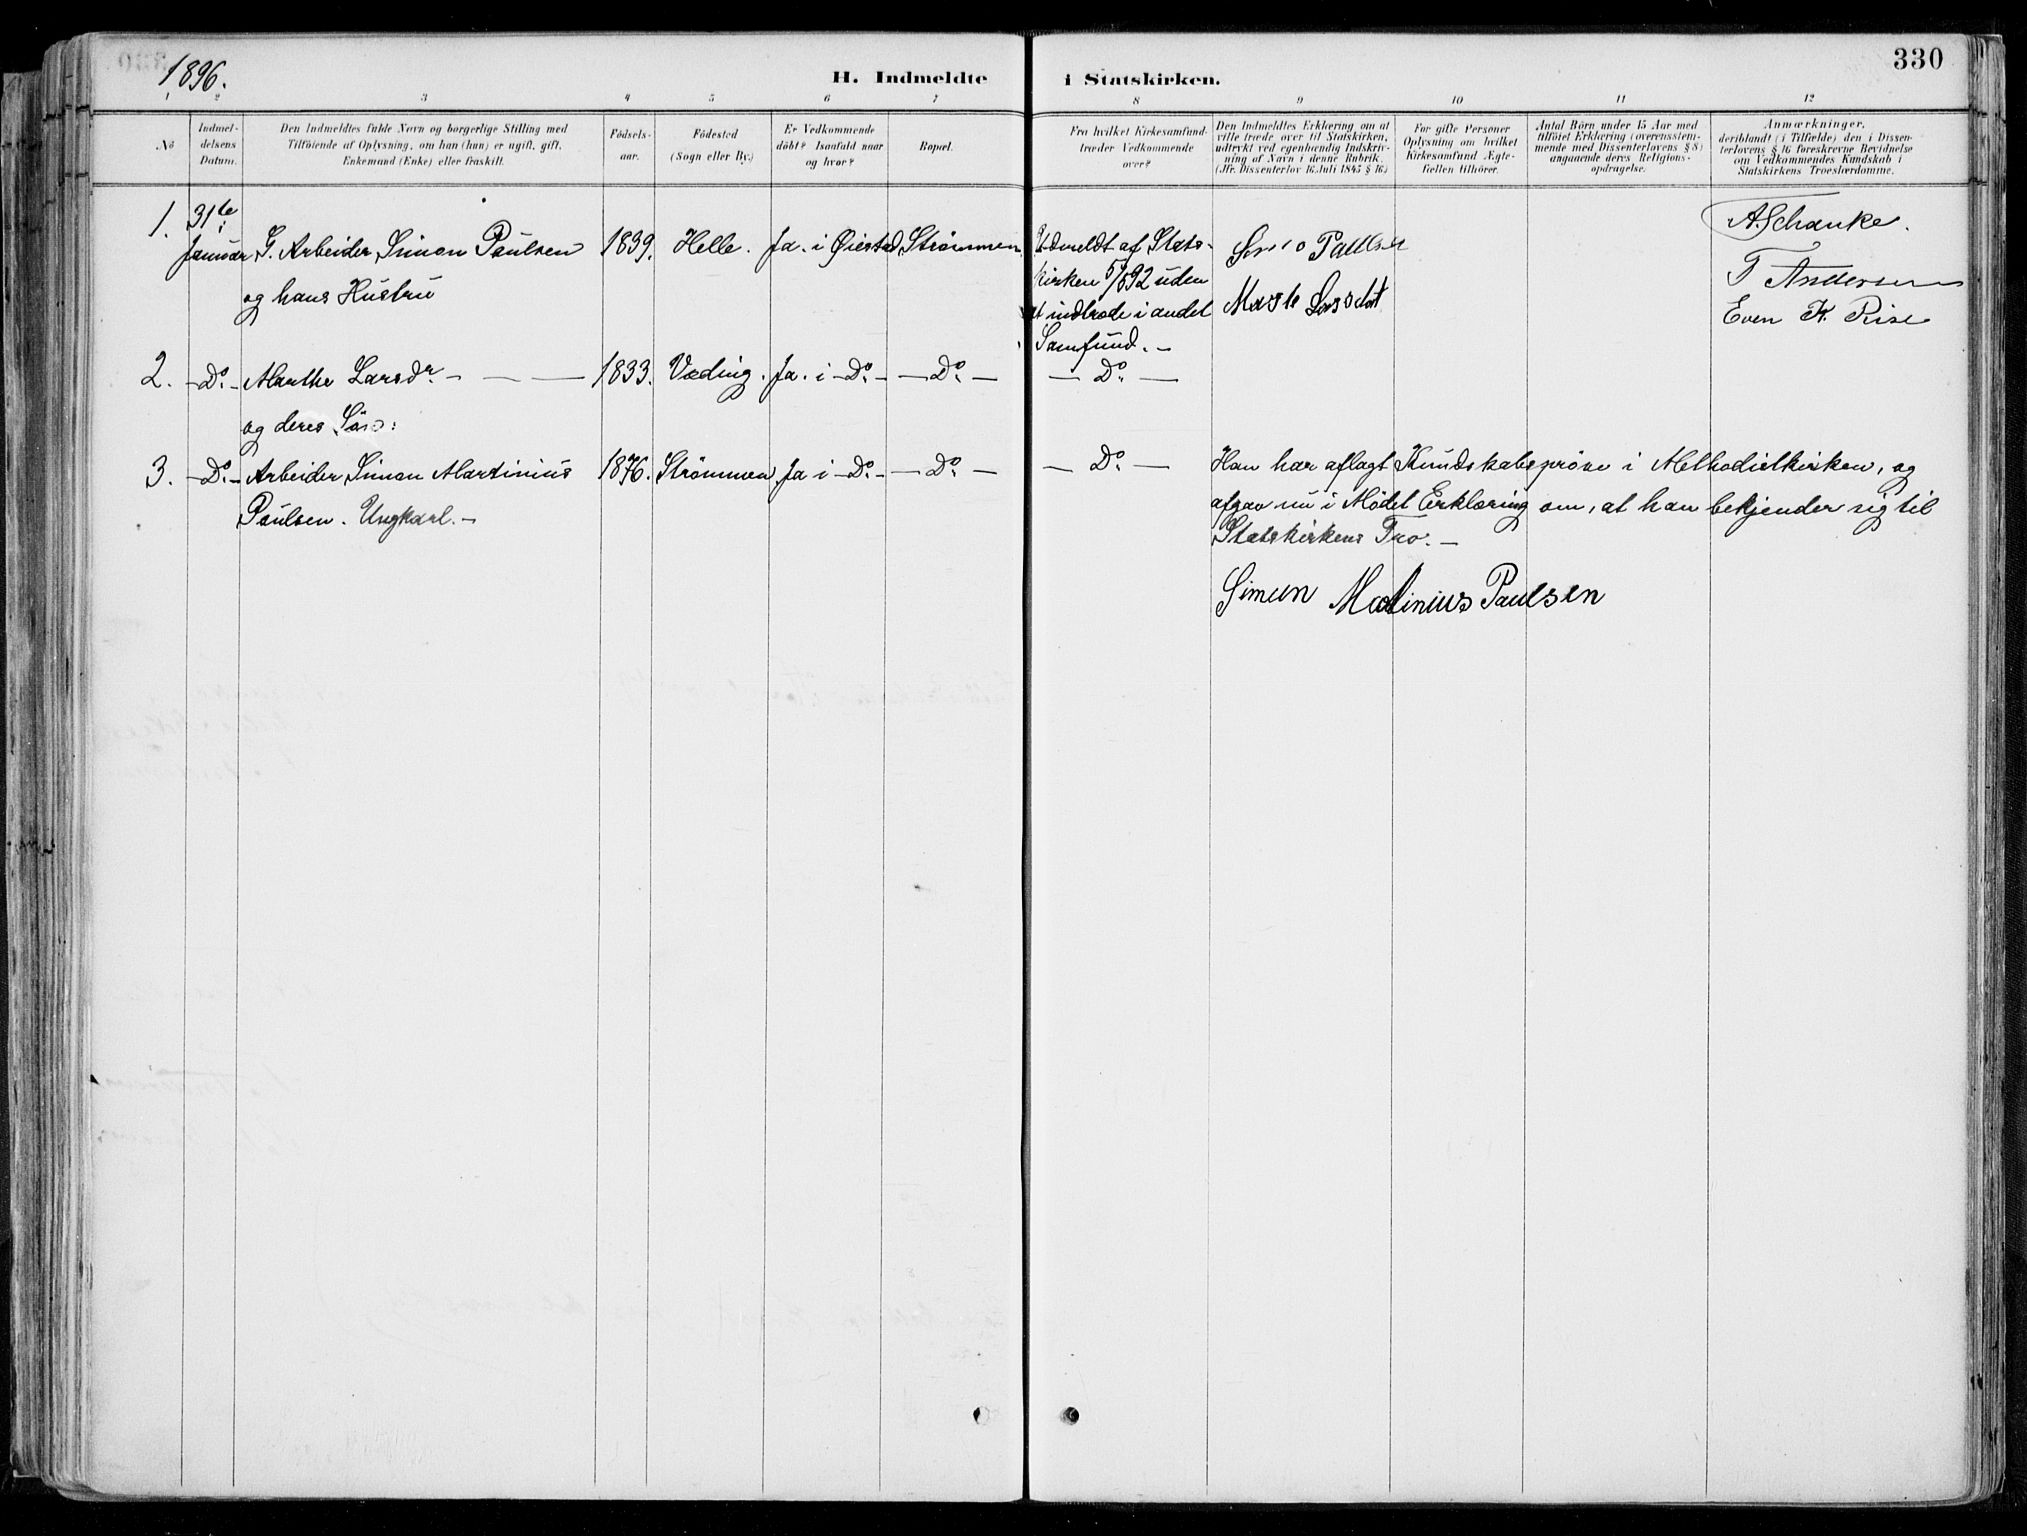 330
1896.
H. Indmeldte i Statskirken.
1 2 3 4 5 6 7 8 9 10 11 12
No
Indmel-
delsens
Datum.
Den Indmeldtes fulde Navn og borgerlige Stilling med
Tilföiende af Oplysning, om han (hun) er ugift, gift,
Enkemand (Enke) eller fraskilt.
Födsels-
aar.
Födested
(Sogn eller By.)
Er Vedkommende
döbt? Isaafald naar
og hvor?
Bopæl.
Fra hvilket Kirkesamfund
træder Vedkommende
over?
Den Indmeldtes Erklæring om at
ville træde over til Statskirken,
udtrykt ved egenhændig Indskriv-
ning af Navn i denne Rubrik.
(Jfr. Dissenterlov 16 Juli 1845 § 16.)
For gifte Personer
Oplysning om hvilket
Kirkesamfund Ægte-
fællen tilhörer.
Antal Börn under 15 Aar med
tilföiet Erklæring (overensstem-
mende med Dissenterlovens § 8)
angaaende deres Religions-
opdragelse.
Anmærkninger,
deriblandt (i Tilfælde) den i Dissen-
terlovens § 16 foreskrevne Bevidnelse
om Vedkommendes Kundskab i
Statskirkens Troeslærdomme.
1. 31te
Januar G. Arbeider Simon Paulsen 1839. Helle. Ja. i Øiestad Strømmen.
og hans Hustru
Udmeldt af Stats-
kirken 5/8 92 uden
at indtræde i andet
Samfund. -
Paulsen
A. Schanke.
T Andersen
Even K. Rise
2. - Do. - Marthe Larsdr. - 1833. Væding. Ja. i - Do. - - Do. - - Do. -
og deres Søn:
3. - Do. - Arbeider Simon Martinius 1876. Strømmen. Ja i - Do. - - Do. - - Do. -
Paulsen. Ungkarl. -
Han har aflagt Kundskabsprøve i Methodistkirken, og
afgav nu i Mødet Erklæring om, at han bekjender sig til
Statskirkens Tro. -
Simun Matinius Paulsen